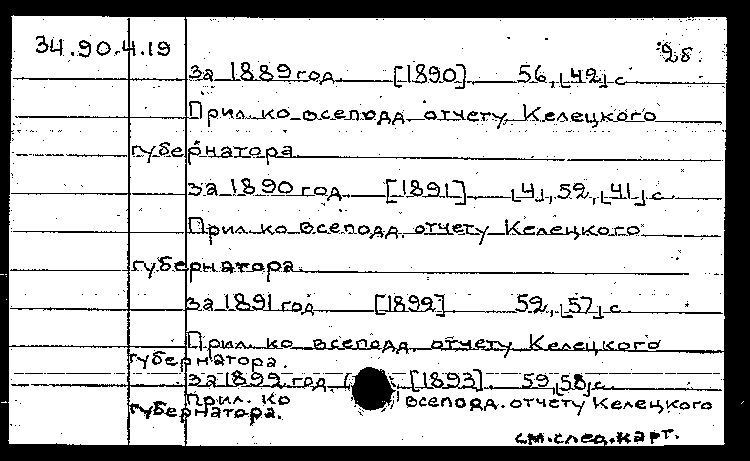 34.90.4.19 '98.
за 1889 год. [1890]. 56,⌊42⌋ с
Прил. ко всеподд. отчету Келецкого
губернатора
за 1890 год. [1891]. ⌊4⌋,52,⌊41⌋ с.
Прил. ко всеподд. отчету Келецкого
губернатора.
за 1891 год [1892]. 52,⌊57⌋ с.
Прил. ко всеподд. отчету Келецкого
губернатора.
за 1892 год [1893]. 59,⌊58⌋ с.
Прил. ко всеподд. отчету Келецкого
губернатора.
см.след.карт.